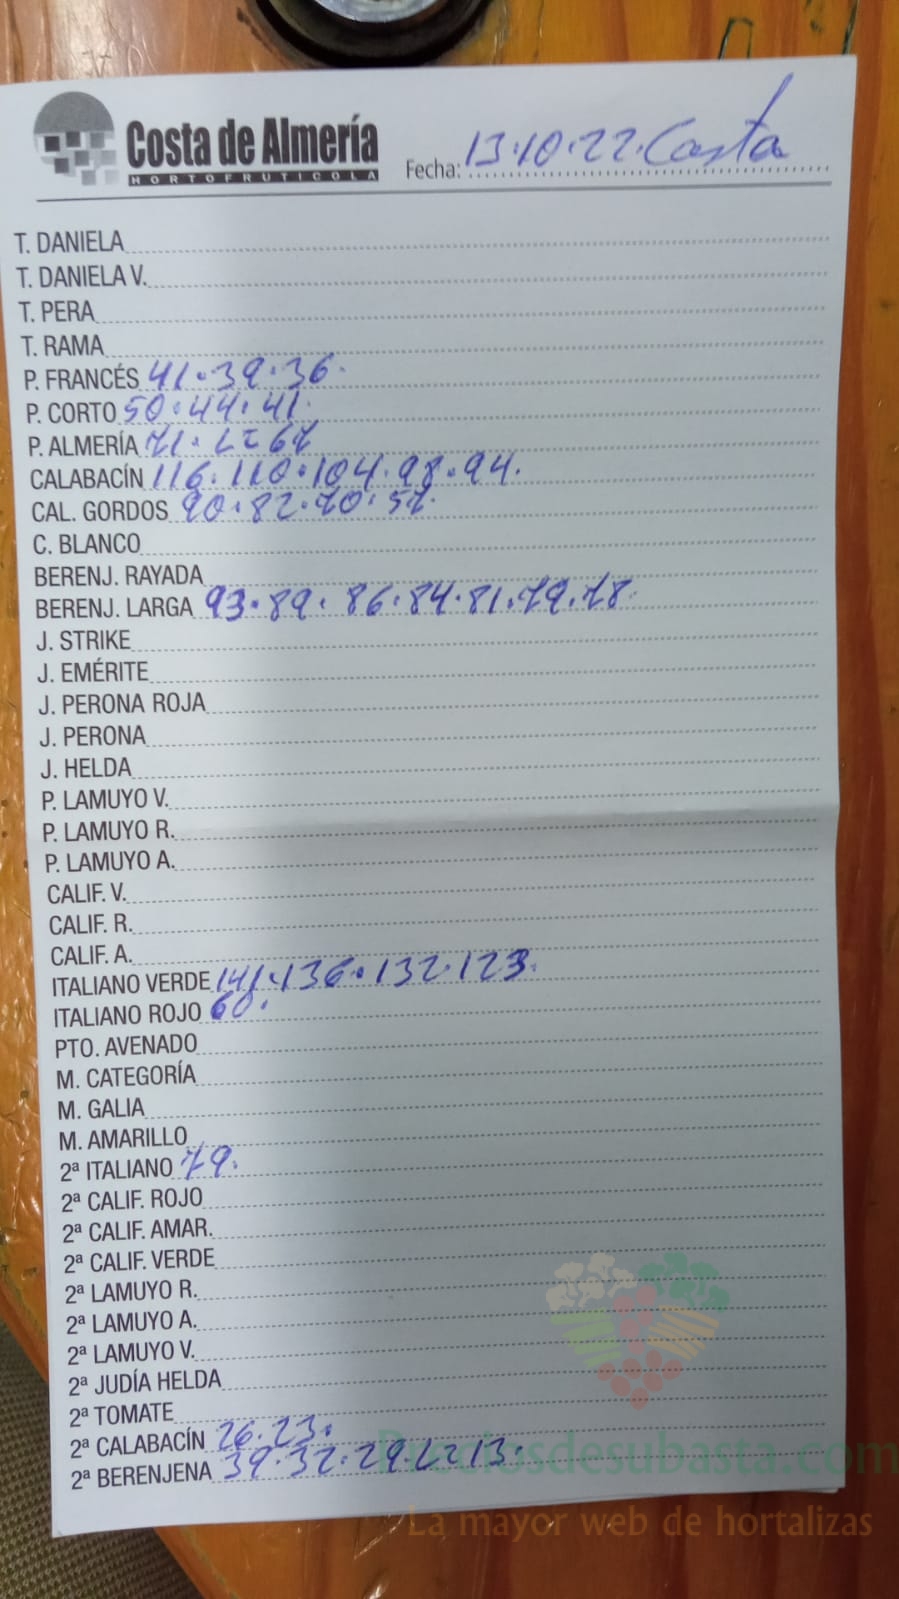 Costa de Almería
HORTOFRUTICOLA
Fecha: 13.10.22. Costa
T. DANIELA
T. DANIELA V.
T. PERA
T. RAMA
P. FRANCÉS 41.39.36.
P. CORTO 50.44.41.
P. ALMERÍA 71. 67
CALABACÍN 116.110.104.98.94.
CAL. GORDOS 90.82.70.57.
C. BLANCO
BERENJ. RAYADA
BERENJ. LARGA 93.89.86.84.81.79.78.
J. STRIKE
J. EMÉRITE
J. PERONA ROJA
J. PERONA
J. HELDA
P. LAMUYO V.
P. LAMUYO R.
P. LAMUYO A.
CALIF. V.
CALIF. R.
CALIF. A.
ITALIANO VERDE 141.136.132.123.
ITALIANO ROJO 60.
PTO. AVENADO
M. CATEGORÍA
M. GALIA
M. AMARILLO
2ª ITALIANO 79.
2ª CALIF. ROJO
2ª CALIF. AMAR.
2ª CALIF. VERDE
2ª LAMUYO R.
2ª LAMUYO A.
2ª LAMUYO V.
2ª JUDÍA HELDA
2ª TOMATE
2ª CALABACÍN 26.23.
2ª BERENJENA 39.32.29. 13.
Preciosdesubasta.com
La mayor web de hortalizas